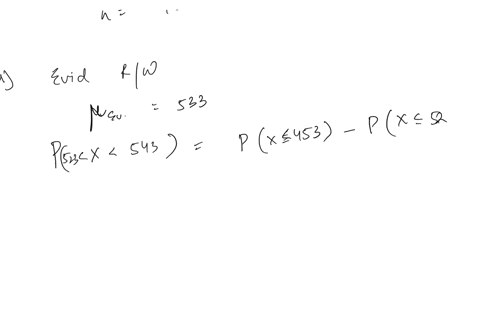 n =
a) Evid R/W
μEv. = 533
P(523 < X < 543) = P(X ≤ 453) - P(X ≤ 52